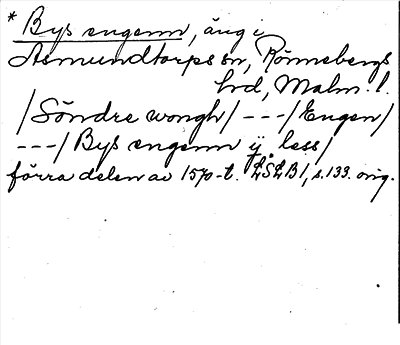 * Bys engenn, äng i
Asmundtorps sn, Rönnebergs
hd, Malm. l.
/Söndre wongh/ --- /Engen/
---/ Bys engenn ij less/
förra delen av 1570-t. LSLB1, s. 133. orig.